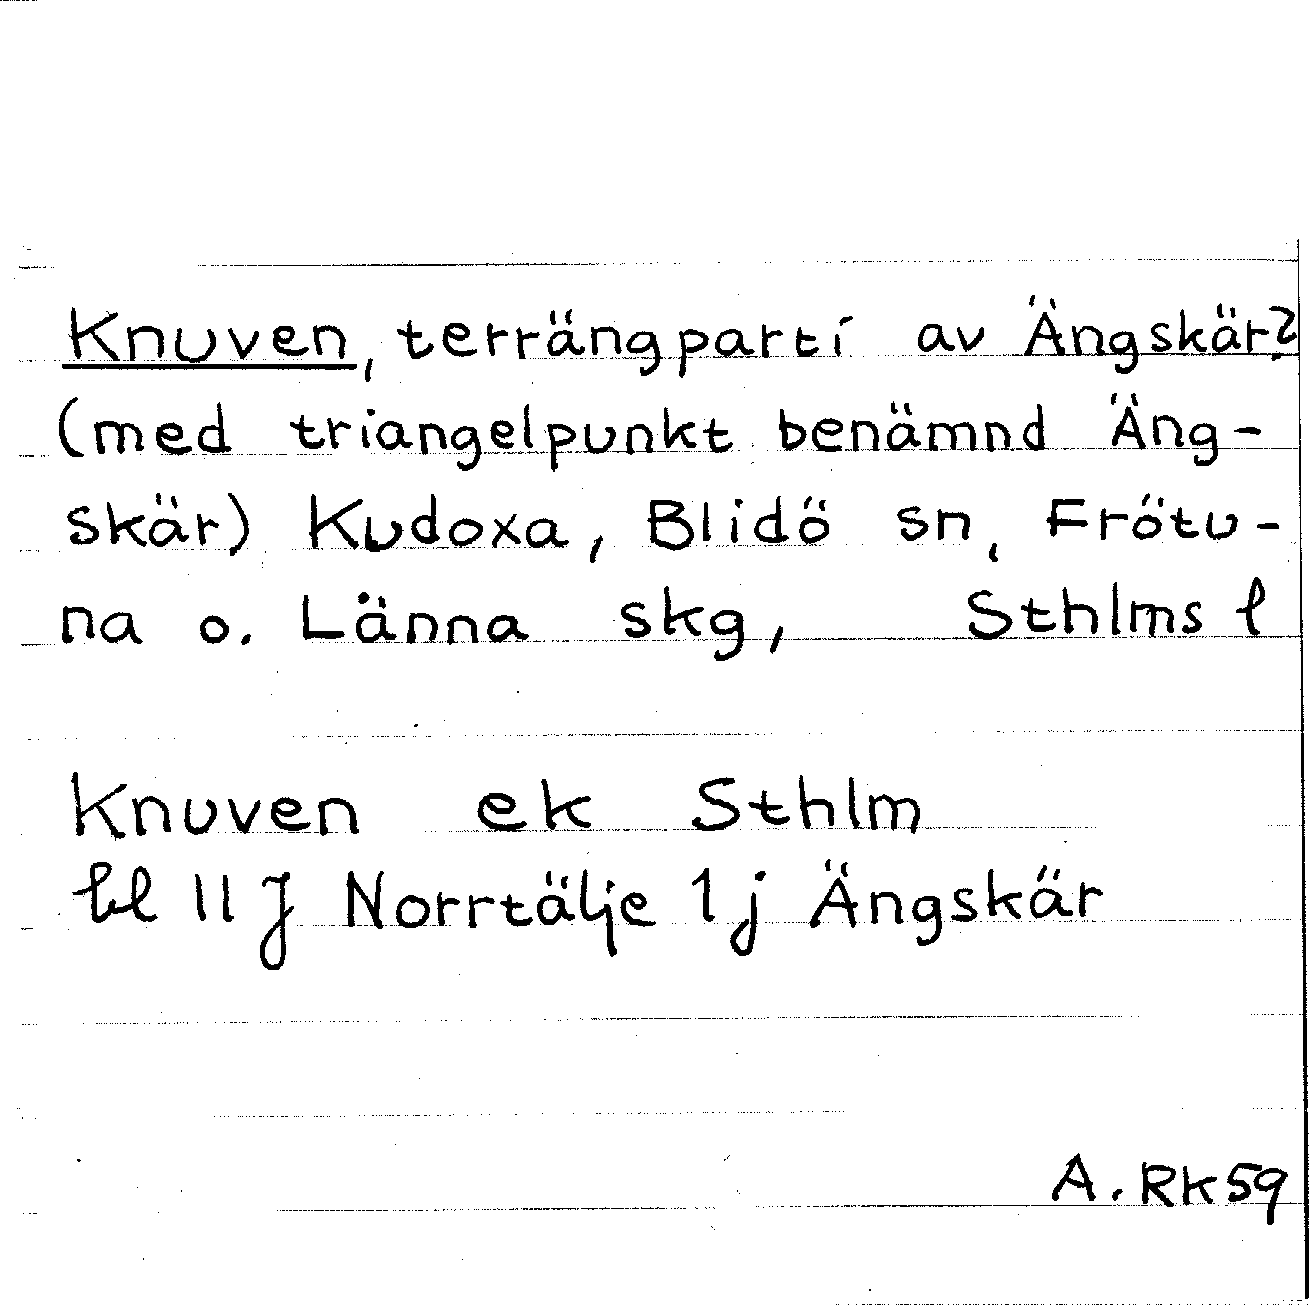 Knuven, terrängparti av Ängskär?
(med triangelpunkt benämnd Äng-
skär) Kudoxa, Blidö sn, Frötu-
na o. Länna skg, Sthlms l
Knuven ek Sthlm
bl 11 J Norrtälje 1 j Ängskär
A. RK 59